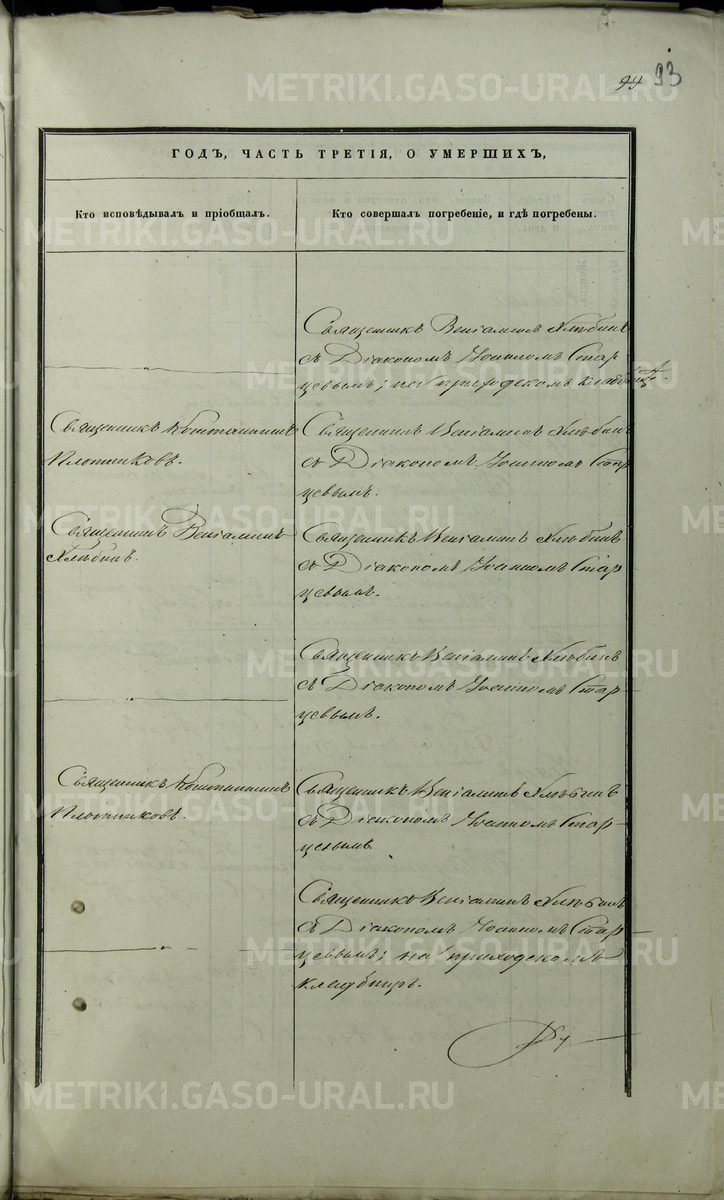 94 93
ГОДЪ, ЧАСТЬ ТРЕТІЯ, О УМЕРШИХЪ,
Кто исповѣдывалъ и пріобщалъ.
Кто совершалъ погребеніе, и гдѣ погребены.
Священникъ Веніаминъ Хлѣбинъ
съ Діакономъ Іоанномъ Стар
цевымъ; на приходскомъ кладбищѣ.
Священникъ Константинъ
Плотниковъ.
Священникъ Веніаминъ Хлѣбинъ
съ Діакономъ Іоанномъ Стар
цевымъ.
Священникъ Веніаминъ
Хлѣбинъ.
Священникъ Веніаминъ Хлѣбинъ
съ Діакономъ Іоанномъ Стар
цевымъ.
Священникъ Веніаминъ Хлѣбинъ
съ Діакономъ Іоанномъ Стар-
цевымъ.
Священникъ Константинъ
Плотниковъ.
Священникъ Веніаминъ Хлѣбинъ
съ Діакономъ Іоанномъ Стар-
цевымъ.
Священникъ Веніаминъ Хлѣбинъ
съ Діакономъ Іоанномъ Стар-
цевымъ; на приходскомъ
кладбищѣ.
METRIKI.GASO-URAL.RU